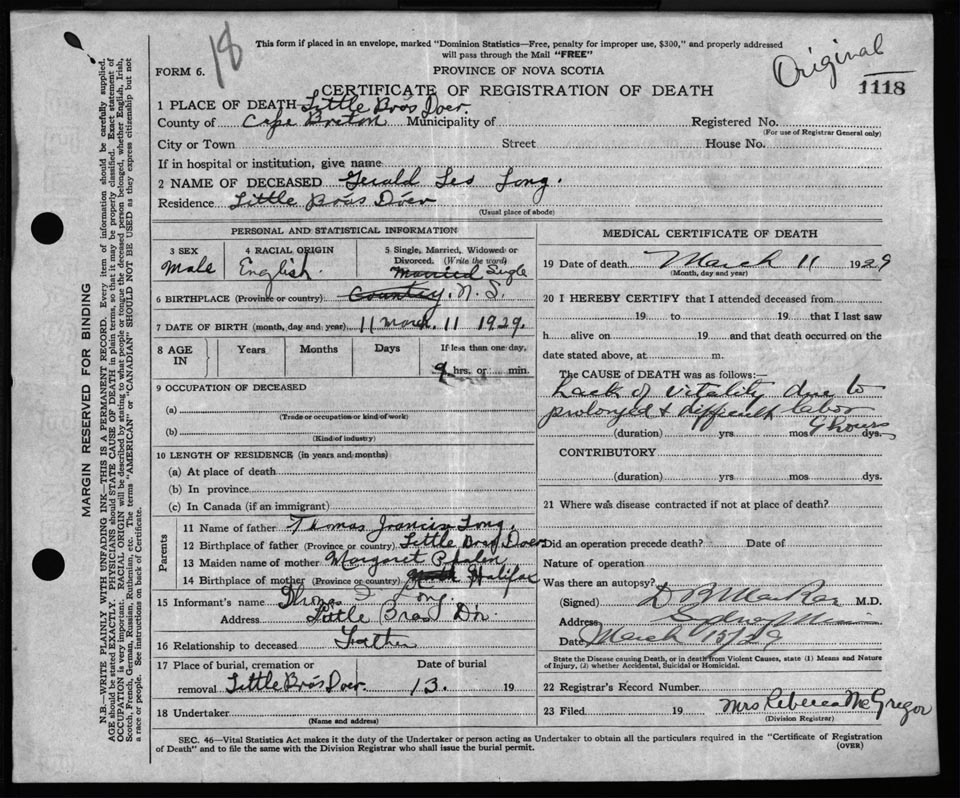 18
This form if placed in an envelope, marked "Dominion Statistics—Free, penalty for improper use, $300," and properly addressed
will pass through the Mail "FREE"
Original
FORM 6.
PROVINCE OF NOVA SCOTIA
CERTIFICATE OF REGISTRATION OF DEATH
1118
1 PLACE OF DEATH Little Bras Doer.
County of Cape Breton Municipality of
Registered No.
(For use of Registrar General only)
City or Town Street House No.
If in hospital or institution, give name
2 NAME OF DECEASED Gerald Leo Long.
Residence Little Bras Doer
(Usual place of abode)
PERSONAL AND STATISTICAL INFORMATION
3 SEX 4 RACIAL ORIGIN 5 Single, Married, Widowed or
Divorced. (Write the word)
Male English. Married Single
6 BIRTHPLACE (Province or country) Country. N. S.
7 DATE OF BIRTH (month, day and year) 11 March 11 1929.
8 AGE IN Years Months Days If less than one day,
9 hrs. or min.
9 OCCUPATION OF DECEASED
(a)
(Trade or occupation or kind of work)
(b)
(Kind of industry)
10 LENGTH OF RESIDENCE (in years and months)
(a) At place of death
(b) In province
(c) In Canada (if an immigrant)
Parents
11 Name of father Thomas Francis Long.
12 Birthplace of father (Province or country) Little Bras Doer
13 Maiden name of mother Margaret Phalen
14 Birthplace of mother (Province or country) Halifax
15 Informant's name Thomas F Long.
Address Little Bras D'or
16 Relationship to deceased Father
17 Place of burial, cremation or Date of burial
removal Little Bras Doer. 13. 19
18 Undertaker
(Name and address)
MEDICAL CERTIFICATE OF DEATH
19 Date of death March 11 1929
(Month, day and year)
20 I HEREBY CERTIFY that I attended deceased from
19 to 19 that I last saw
h alive on 19 and that death occurred on the
date stated above, at m.
The CAUSE of DEATH was as follows:—
Lack of vitality due to
prolonged & difficult labor
9 hours
(duration) yrs mos dys.
CONTRIBUTORY
(duration) yrs. mos dys.
21 Where was disease contracted if not at place of death?
Did an operation precede death? Date of
Nature of operation
Was there an autopsy?
(Signed) M.D.
Address Sydney Mines
Date March 12/29
State the Disease causing Death, or in death from Violent Causes, state (1) Means and Nature
of Injury, (2) whether Accidental, Suicidal or Homicidal.
22 Registrar's Record Number
23 Filed 19 Mrs Rebecca McGregor
(Division Registrar)
SEC. 46—Vital Statistics Act makes it the duty of the Undertaker or person acting as Undertaker to obtain all the particulars required in the "Certificate of Registration
of Death" and to file the same with the Division Registrar who shall issue the burial permit.
(OVER)
MARGIN RESERVED FOR BINDING
N.B.—WRITE PLAINLY WITH UNFADING INK—THIS IS A PERMANENT RECORD. Every item of information should be carefully supplied.
AGE should be stated EXACTLY. PHYSICIANS should STATE CAUSE OF DEATH in plain terms, so that it may be properly classified. Exact statement of
OCCUPATION is very important. RACIAL ORIGIN will be described by stating to what people or tongue the deceased person belonged, whether English, Irish,
Scotch, French, German, Russian, Ruthenian, etc. The terms "AMERICAN" or "CANADIAN" SHOULD NOT BE USED as they express citizenship but not
a race or people. See instructions on back of Certificate.